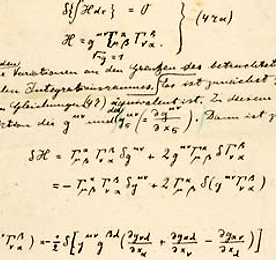 δ{∫H dτ} = 0
H = g^{μν} Γ^α_{μβ} Γ^β_{να} } (47a)
√-g = 1
den
Variationen an den Grenzen des betrachteten
en Integrationsraumes. Es ist zunächst
Gleichungen (47) äquivalent ist. Zu diesem
tion der g^{μν} und g^{μν}_σ (= ∂g^{μν}/∂x_σ). Dann ist
δH = Γ^α_{μβ} Γ^β_{να} δg^{μν} + 2 g^{μν} Γ^α_{μβ} δΓ^β_{να}
= - Γ^α_{μβ} Γ^β_{να} δg^{μν} + 2 Γ^α_{μβ} δ(g^{μν} Γ^β_{να})
Γ^β_{να}) = - 1/2 δ[g^{μν} g^{βλ} (∂g_{νλ}/∂x_α + ∂g_{αλ}/∂x_ν - ∂g_{αν}/∂x_λ)]